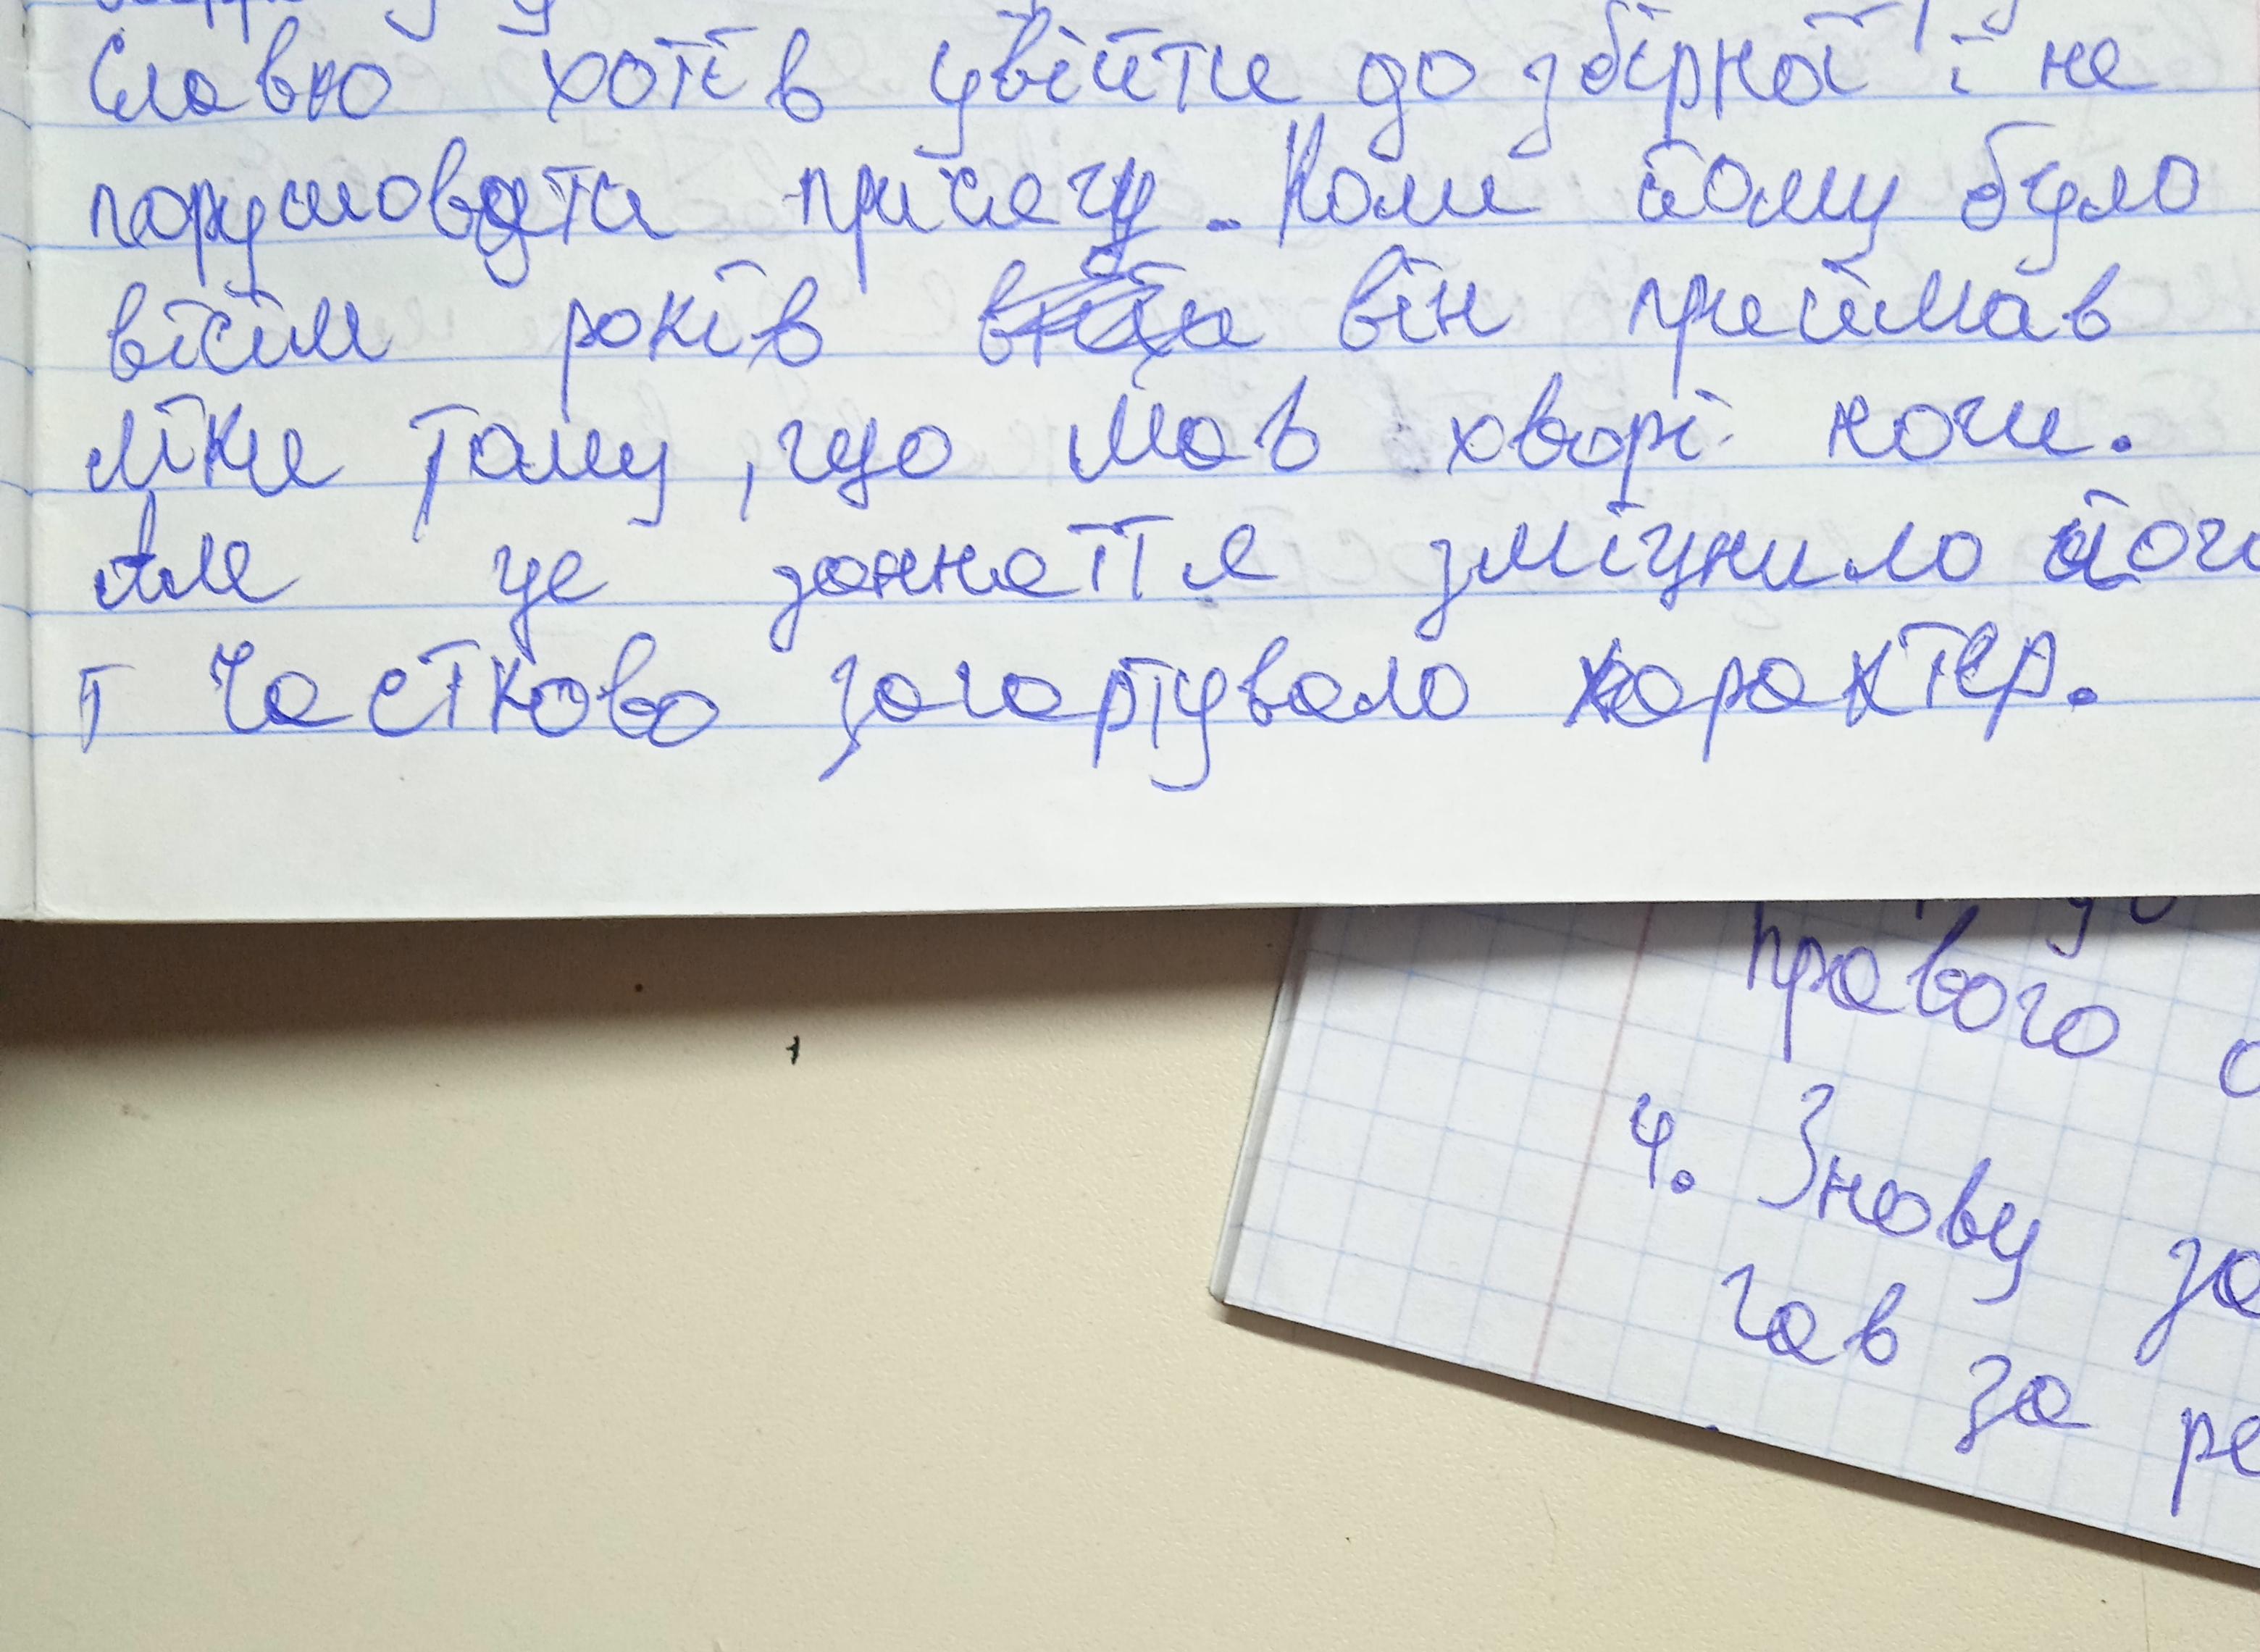 Славко хотів увійти до збірної і не
порушовувати присягу. Коли йому було
вісім років він приймав
ліки тому, що мав хворі ноги.
Але це заннаття зміцнило його
і частково загартувало характер.
правого
4. Знову за
гав за ре